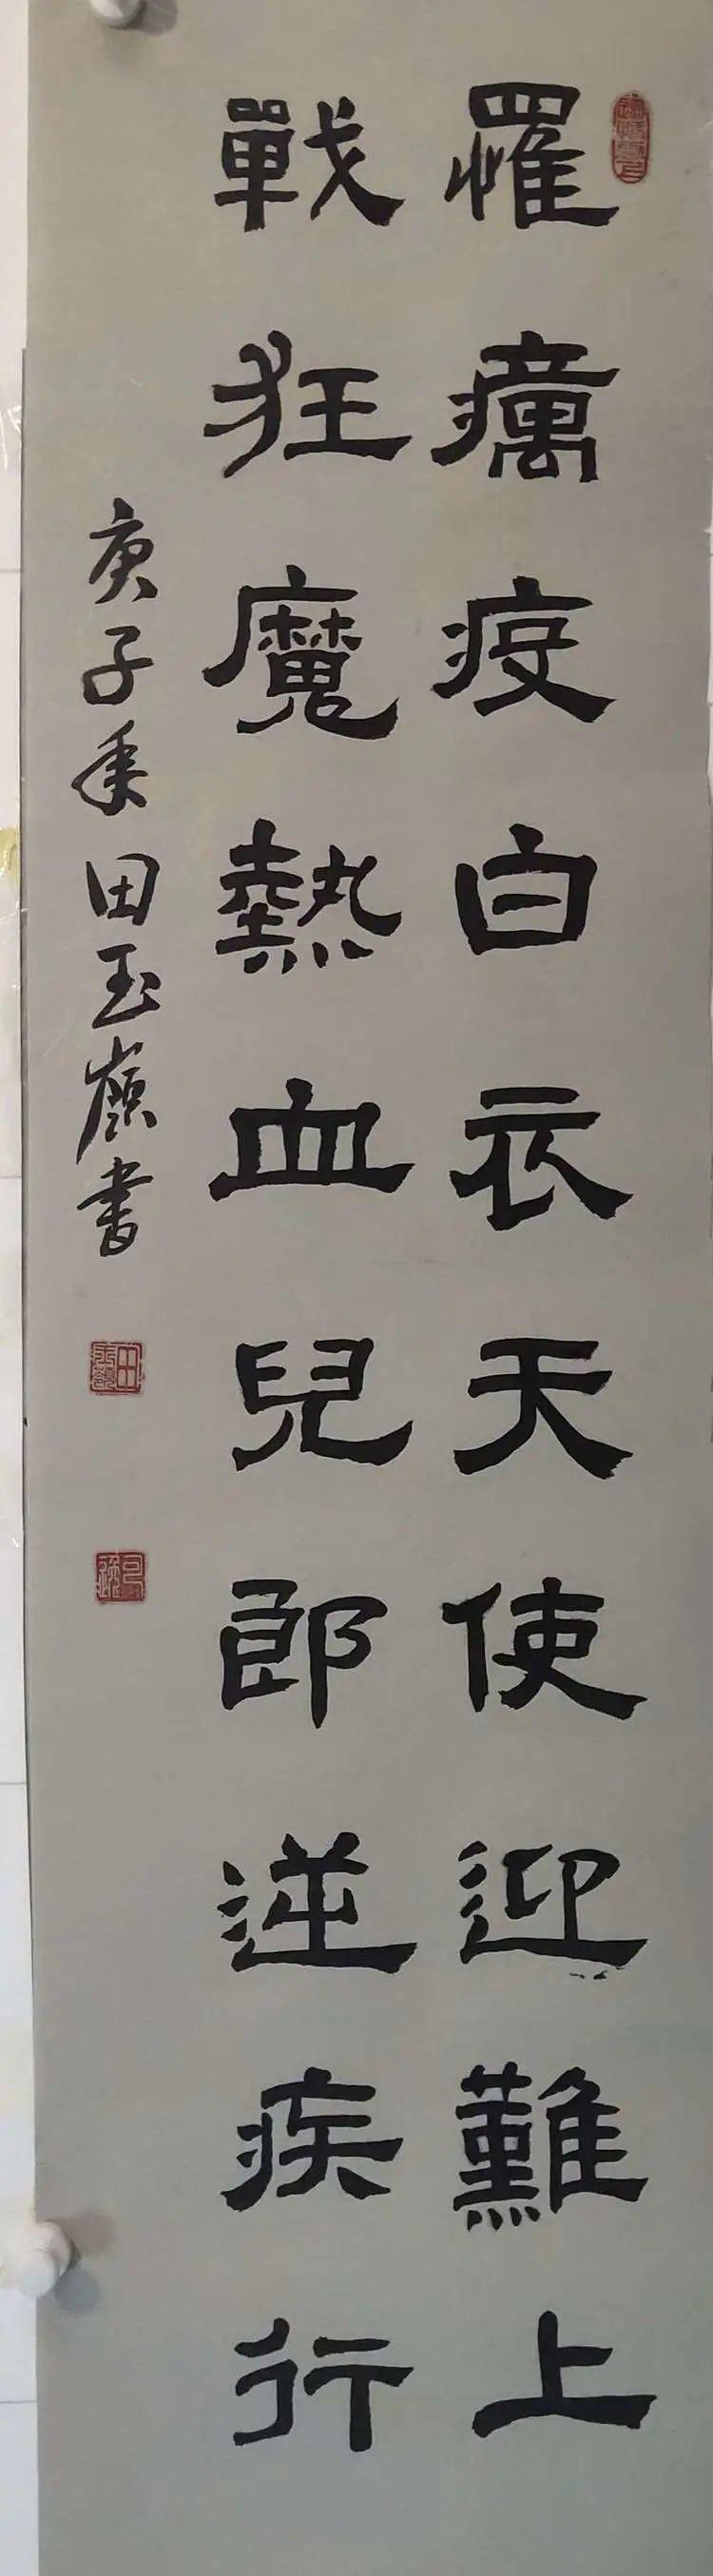 罹癘疫白衣天使迎難上
戰狂魔熱血兒郎逆疾行
庚子年田玉嶺書